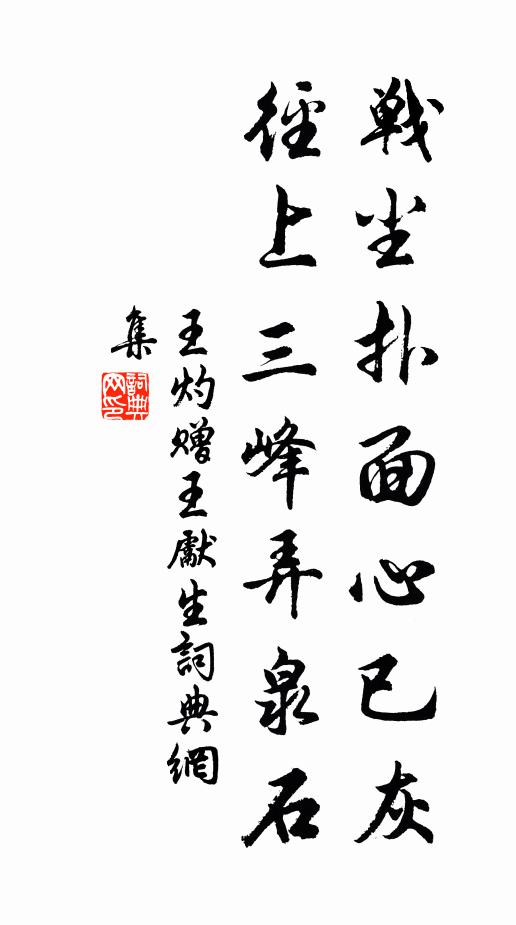 戦尘扑面心已灰
径上三峰弄泉石
王灼赠王獻生詞典網
集
詞典网印